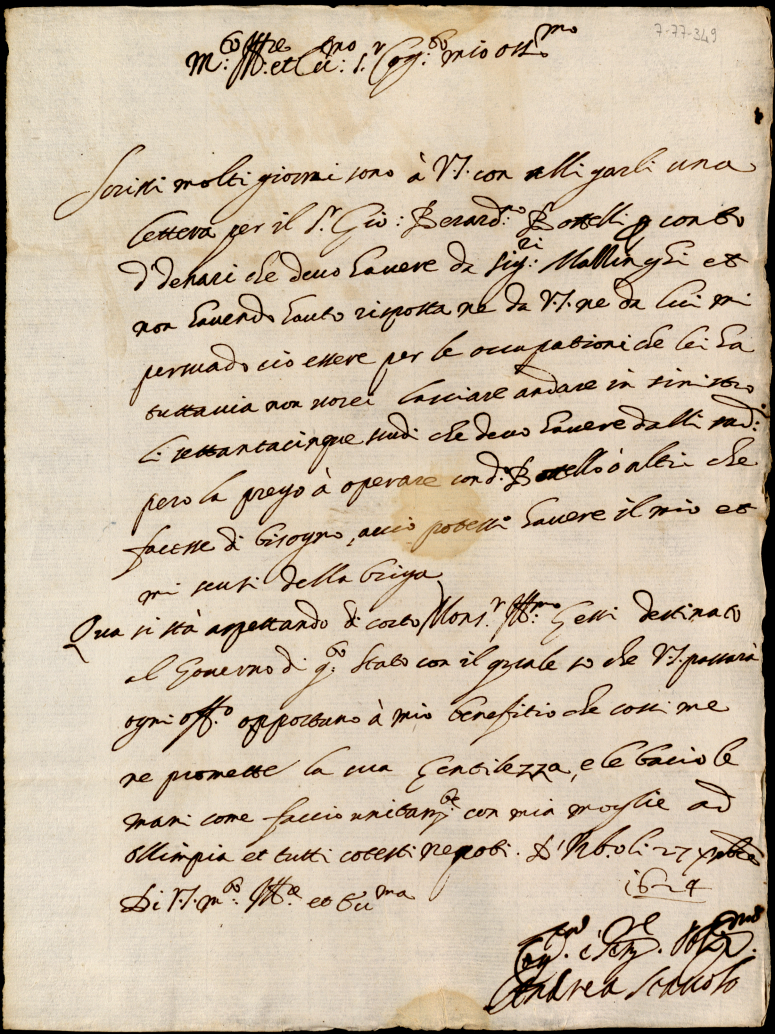 7-77-349
M:to Ill.re et Ecc:mo S.r Cog:to mio oss.mo
Scrissi molti giorni sono à V.S. con una
lettera per il S.r Gio: Berard.o Bottelli conto
d'denari che devo havere da sig:ri Mallinghi et
non havendo hauto risposta ne da V.S. ne da lui mi
persuado cio essere per le occupationi che lei ha
tuttavia non vorei lasciare andare in sinistro
li settantacinque scudi che devo havere dalli sud:i
pero la prego à operare con d.o Bottello ò altri che
facesse di bisogno, accio potessi havere il mio et
mi scusi della briga
Qua si stà aspettando di corto Mons.r Ill:mo Gessi destinato
al Governo di q:to Stato con il quale so che V.S. passarà
ogni off.o opportuno à mio benefitio che cossi me
ne promette la sua Gentilezza, e le bacio le
mani come faccio unitam:te con mia moglie ad
Ollimpia et tutti cotesti nepoti. D' li 27
1624
Di V.S. m.to Ill.re et Ecc.ma
Andrea